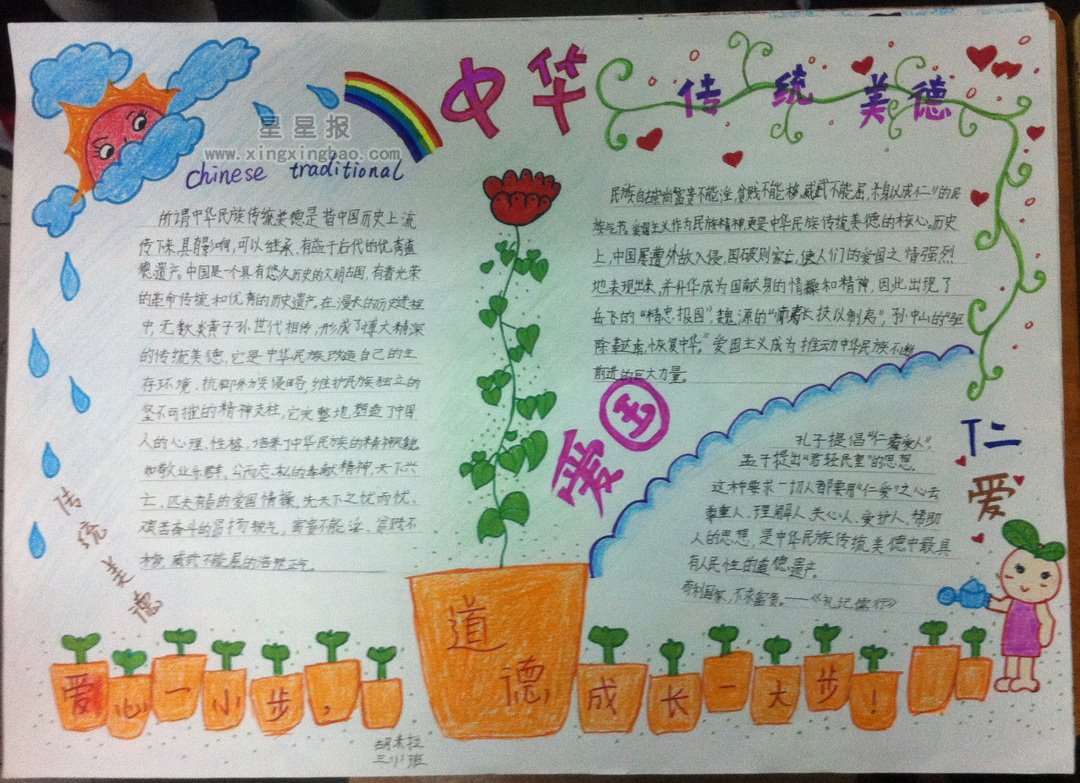 中华
传统美德
星星报
www.xingxingbao.com
chinese traditional
所谓中华民族传统美德是指中国历史上流
传下来,具有影响,可以继承,有益于后代的优秀道
德遗产。中国是一个具有悠久历史的文明古国,有着光荣
的革命传统和优秀的历史遗产。在漫长的历史进程
中,无数炎黄子孙世代相传,形成了博大精深
的传统美德,它是中华民族改造自己的生
存环境,抗御外族侵略,维护民族独立的
坚不可摧的精神支柱,它完整地塑造了中国
人的心理、性格,培养了中华民族的精神风貌,
如敬业乐群、公而忘私的奉献精神,天下兴
亡、匹夫有责的爱国情操,先天下之忧而忧、
艰苦奋斗的昂扬锐气,富贵不能淫、贫贱不
移,威武不能屈的浩然正气。
传统美德
民族自古崇尚富贵不能淫,贫贱不能移,威武不能屈,杀身以成仁"的民
族气节,爱国主义作为民族精神更是中华民族传统美德的核心。历史
上,中国屡遭外敌入侵,国破则家亡,使人们的爱国之情强烈
地表现出来,并升华成为国献身的情操和精神,因此出现了
岳飞的"精忠报国",魏源的"师夷长技以制夷",孙中山的"驱
除鞑虏,恢复中华。"爱国主义成为推动中华民族不断
前进的巨大力量。
爱国
仁爱
孔子提倡"仁者爱人",
孟子提出"君轻民重"的思想。
这种要求一切人都要用"仁爱"之心去
尊重人、理解人、关心人、爱护人、帮助
人的思想,是中华民族传统美德中最具
有人民性的道德遗产。
苟利国家,不求富贵。——《礼记儒行》
道德
爱心一小步,
成长一大步!
三(1)班